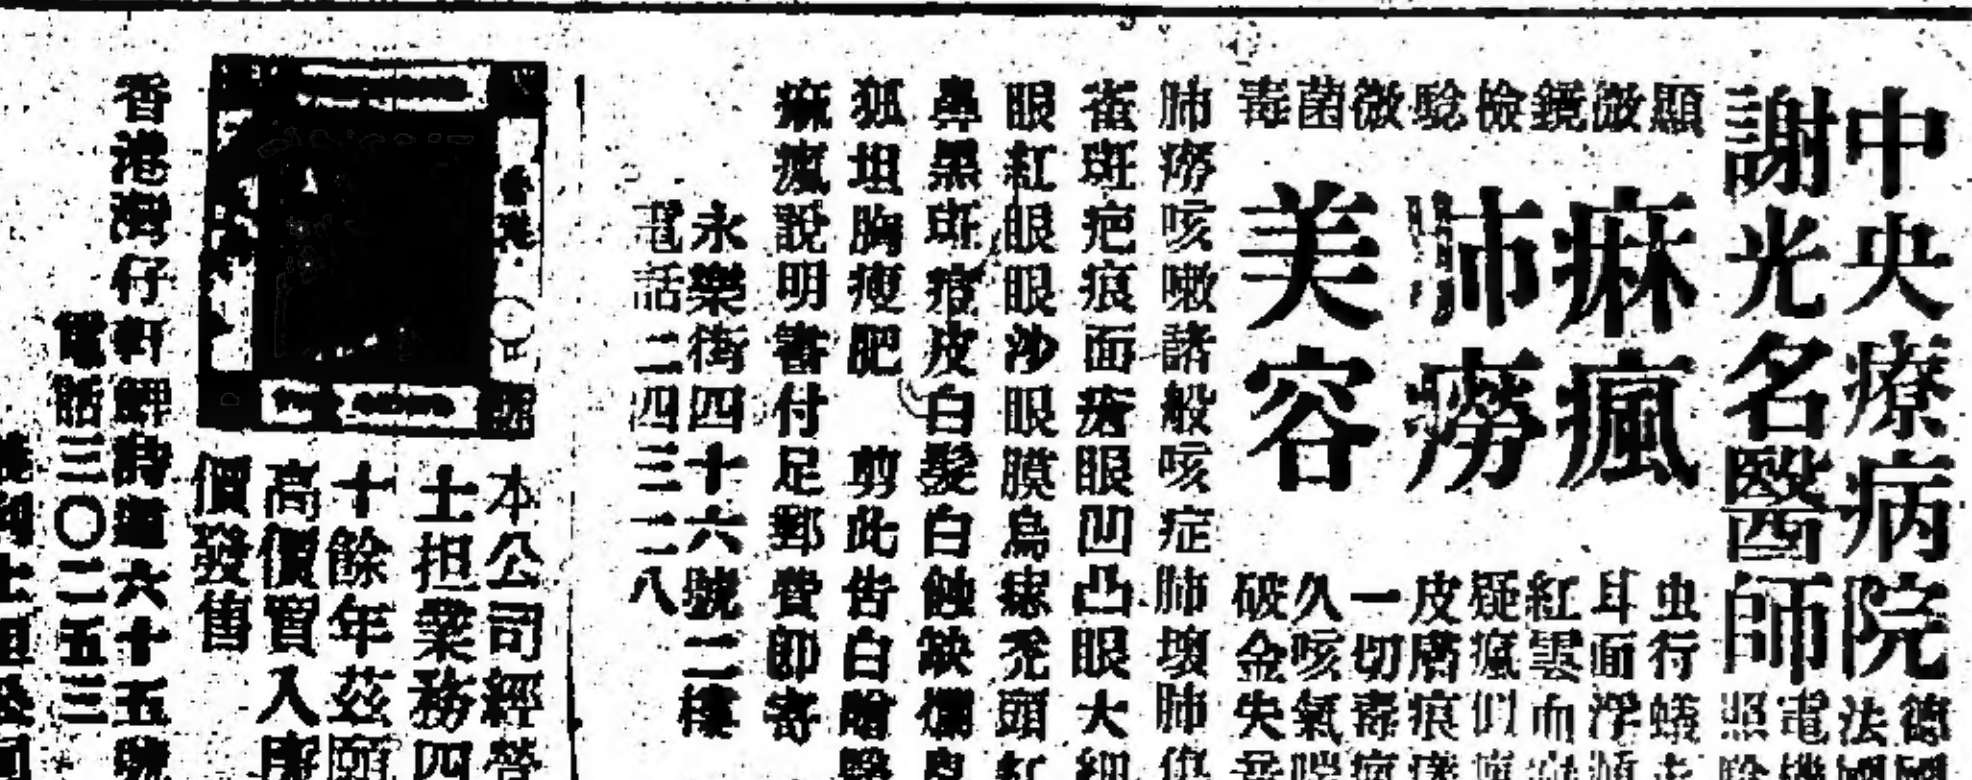 中央療病院
謝光名醫師
德
法
電
照
顯微鏡檢驗微菌毒
痳瘋
肺癆
美容
虫行蟻
耳面浮
紅雲而
疑瘋似
皮膚痕
一切毒
久咳氣
破金失
肺癆咳嗽諸般咳症肺壞肺
雀斑疤痕面瘡眼凹凸眼大
眼紅眼眼沙眼眼膜烏痣禿頭
鼻黑斑痦皮白髮白蝕缺爛
狐坦胸瘦肥 剪此告白
痳瘋說明書付足郵費即寄
永樂街四十六號二樓
電話二四三二八
本公司經營
士担業務四
十餘年茲願
高價買入
價發售
香港灣仔軒鯉詩道六十五號
電話三〇二五三